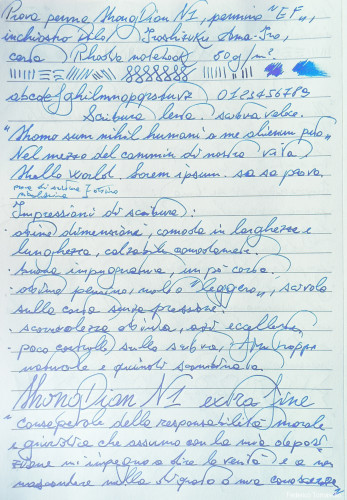 Prova penna HongDian N1, pennino "EF",
inchiostro Pilot Iroshizuku Ama-Iro,
carta Rhodia notebook 80g/m²
abcdefghilmnopqrstuvz 0123456789
Scrittura lenta. scrittura veloce.
"Homo sum nihil humani a me alienum puto"
Nel mezzo del cammin di nostra vita
Hello world. Lorem ipsum. sa sa prova
prova di scrittura
Impressioni di scrittura:
· ottime dimensioni, comoda in larghezza e
lunghezza, calzabile comodamente.
· buona impugnatura, un po' corta.
· ottimo pennino, molto "leggero", scivola
sulla carta senza pressione.
· scorrevolezza ottima, anzi eccellente
· poco controllo sulla scrittura, troppo
naturale e quindi scoordinata.
HongDian N1 extra fine
"consapevole della responsabilità morale
e giuridica che assumo con la mia deposi
zione mi impegno a dire la verità e a non
nascondere nulla di quanto a mia conoscenza"